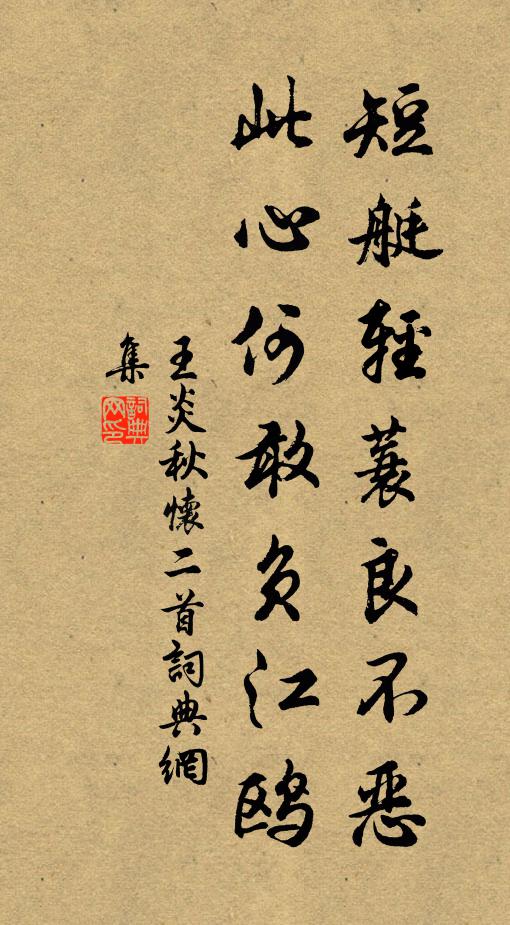 短艇輕蓑良不惡
此心何敢負江鸥
王炎秋懷二首詞典網
集
詞典網印